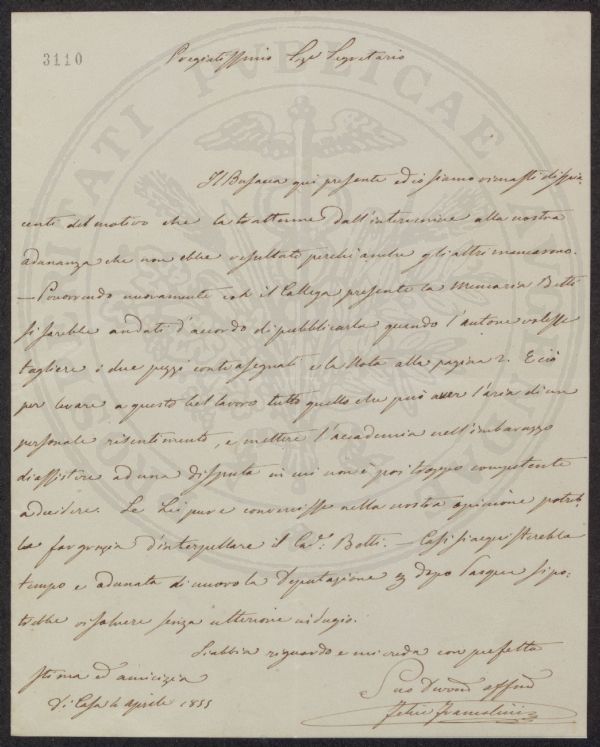 3110
Pregiatissimo Sige Segretario
Il Busacca qui presente ed io siamo rimasti dispia-
centi del motivo che la trattenne dall'intervenire alla nostra
adunanza che non ebbe resultato perchè anche gli altri mancarono.
— Percorrendo nuovamente col il Collega presente la Memoria Betti
si sarebbe andati d'accordo di pubblicarla quando l'autore volesse
togliere i due pezzi contrasegnati e la Nota alla pagina 2. E ciò
per levare a questo bel lavoro tutto quello che può aver l'aria di un
personale risentimento, e mettere l'accademia nell'imbarazzo
di assistere ad una disputa in cui non è poi troppo competente
a decidere. Se Lei pure convenisse nella nostra opinione potreb-
be far grazia d'interpellare il Cav. Betti. — Così si acquisterebbe
tempo e adunata di nuovo la Deputazione dopo Pasqua si po-
trebbe risolvere senza ulteriore indugio.
S'abbia riguardo e mi creda con perfetta
stima ed amicizia
Di Casa 4 Aprile 1855
Suo Devmo affmo
Felice Francolini